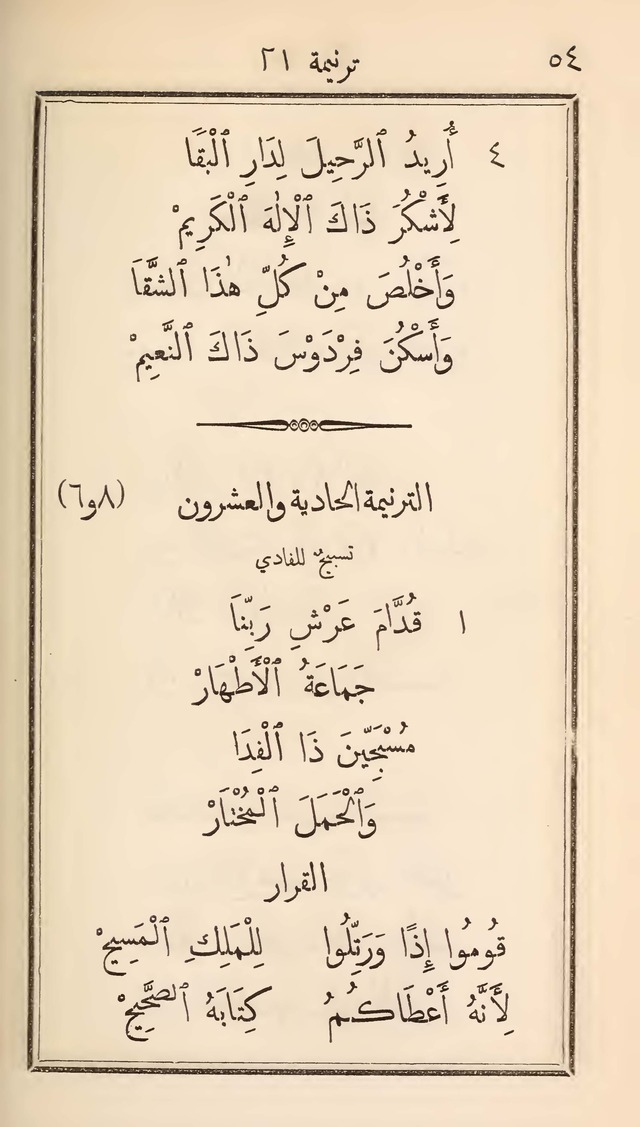 ٥٤ ترنيمة ٢١
٤ أُرِيدُ ٱلرَّحِيلَ لِدَارِ ٱلْبَقَا
لِأَشْكُرَ ذَاكَ ٱلْإِلٰهَ ٱلْكَرِيمْ
وَأَخْلُصَ مِنْ كُلِّ هٰذَا ٱلشَّقَا
وَأَسْكُنَ فِرْدَوْسَ ذَاكَ ٱلنَّعِيمْ
الترنيمة الحادية والعشرون (٨و٦)
تسبيحٌ للفادي
١ قُدَّامَ عَرْشِ رَبِّنَا
جَمَاعَةُ ٱلْأَطْهَارْ
مُسَبِّحِينَ ذَا ٱلْفِدَا
وَٱلْحَمَلَ ٱلْمُخْتَارْ
القرار
قُومُوا إِذًا وَرَتِّلُوا لِلْمَلِكِ ٱلْمَسِيحْ
لِأَنَّهُ أَعْطَاكُمُ كِتَابَهُ ٱلصَّحِيحْ